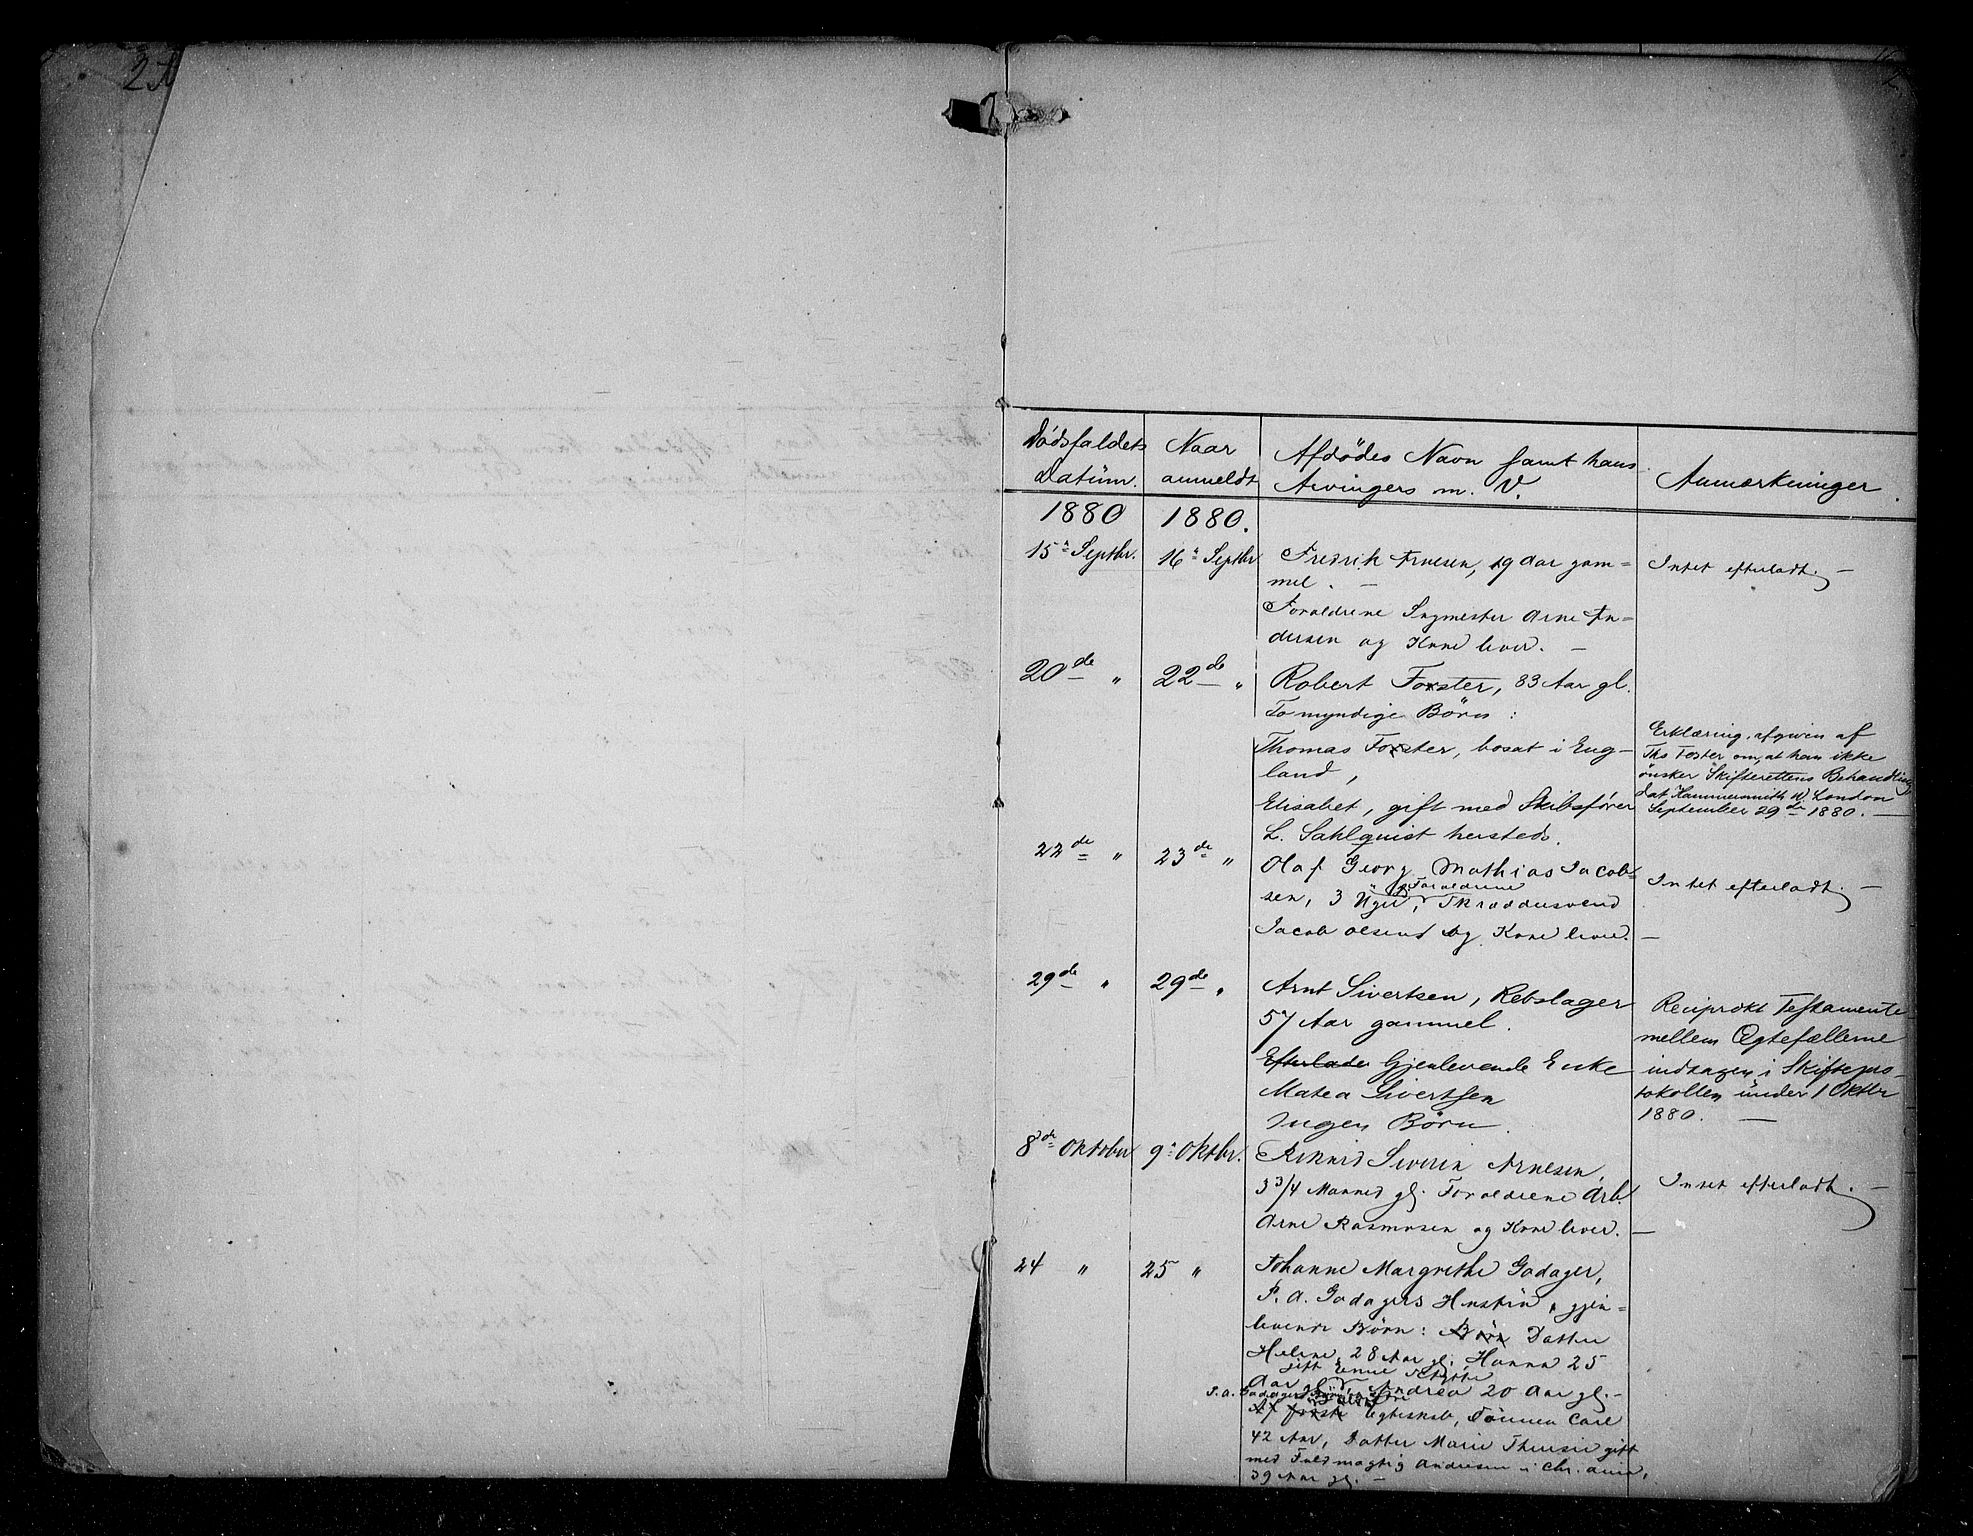 2
Dødsfaldets
Datum.
Naar
anmeldt
Afdødes Navn samt hans
Arvingers m. V.
Anmærkninger.
1880
1880.
15 Septbr.
16 Septbr
Fredrik Arnesen, 19 Aar gam=
mel. —
Intet efterladt. —
Forældrene Arne An=
dersen og Kone lever. —
20de "
22de "
Robert Forster, 83 Aar gl.
To myndige Börn :
Thomas Forster, bosat i Eng-
land,
Elisabet, gift med Skibsfører
L. Sahlquist hersteds.
Erklæring afgiven af
Ths Foster om, at han ikke
ønsker Skifterettens Behandling
dat. Hammersmith W London
September 29de 1880. —
22de "
23de "
Olaf Georg Mathias Jacob=
sen, 3 Uger, Forældrene Skræddersvend
Jacob Olsen og Kone lever. —
Intet efterladt. —
29de "
29de "
Arnt Sivertsen, Rebslager
57 Aar gammel.
Efterlader Gjenlevende Enke
Matea Sivertsen
Ingen Börn.
Reciprokt Testamente
mellem Ægtefællerne
indtagen i Skiftepro-
tokollen under 1 Oktbr
1880. —
8de Oktober
9 Oktbr.
Severin Arnesen,
3 3/4 Maaned gl. Forældrene Arb.
Arne Rasmusen og Kone lever. —
Intet efterladt. —
24 "
25 "
Johanne Margrethe Gadager,
P. A. Gadagers Hustru, gjen=
levende Börn: Börn Datter
Helene 28 Aar gl. Hanna 25
gift
Aar gl. Andrea 20 Aar gl. —
P. A. Gadagers
Af første Egteskab, Sönnen Carl
42 Aar, Datter Marie Theresie gift
med Fuldmægtig Andresen i Chr.ania,
39 Aar gl. —